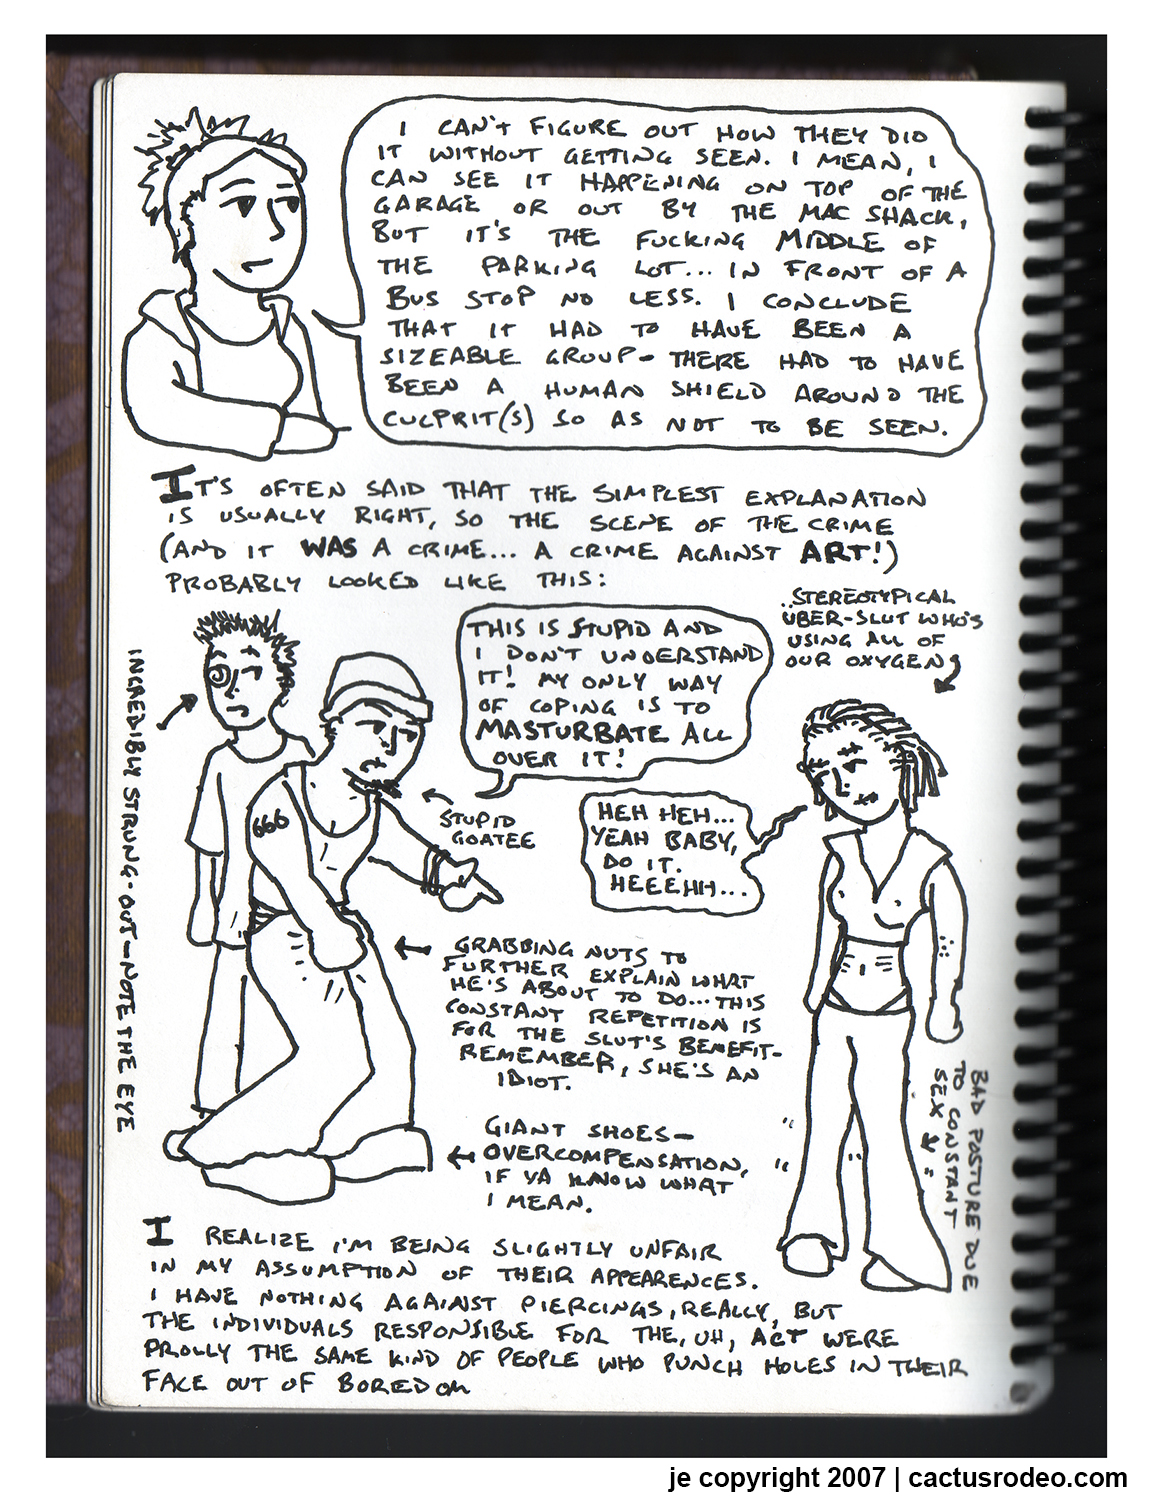 I CAN'T FIGURE OUT HOW THEY DID
IT WITHOUT GETTING SEEN. I MEAN, I
CAN SEE IT HAPPENING ON TOP OF THE
GARAGE OR OUT BY THE MAC SHACK,
BUT IT'S THE FUCKING MIDDLE OF
THE PARKING LOT... IN FRONT OF A
BUS STOP NO LESS. I CONCLUDE
THAT IT HAD TO HAVE BEEN A
SIZEABLE GROUP- THERE HAD TO HAVE
BEEN A HUMAN SHIELD AROUND THE
CULPRIT(S) SO AS NOT TO BE SEEN.
IT'S OFTEN SAID THAT THE SIMPLEST EXPLANATION
IS USUALLY RIGHT, SO THE SCENE OF THE CRIME
(AND IT WAS A CRIME... A CRIME AGAINST ART!)
PROBABLY LOOKED LIKE THIS:
INCREDIBLY STRUNG-OUT-NOTE THE EYE
THIS IS STUPID AND
I DON'T UNDERSTAND
IT! MY ONLY WAY
OF COPING IS TO
MASTURBATE ALL
OVER IT!
STEREOTYPICAL
ÜBER-SLUT WHO'S
USING ALL OF
OUR OXYGEN
666
STUPID
GOATEE
HEH HEH...
YEAH BABY,
DO IT.
HEEEHH...
GRABBING NUTS TO
FURTHER EXPLAIN WHAT
HE'S ABOUT TO DO... THIS
CONSTANT REPETITION IS
FOR THE SLUT'S BENEFIT-
REMEMBER, SHE'S AN
IDIOT.
BAD POSTURE DUE
TO CONSTANT
SEX
GIANT SHOES-
OVERCOMPENSATION,
IF YA KNOW WHAT
I MEAN.
I REALIZE I'M BEING SLIGHTLY UNFAIR
IN MY ASSUMPTION OF THEIR APPEARENCES.
I HAVE NOTHING AGAINST PIERCINGS, REALLY, BUT
THE INDIVIDUALS RESPONSIBLE FOR THE, UH, ACT WERE
PROLLY THE SAME KIND OF PEOPLE WHO PUNCH HOLES IN THEIR
FACE OUT OF BOREDOM
je copyright 2007 | cactusrodeo.com